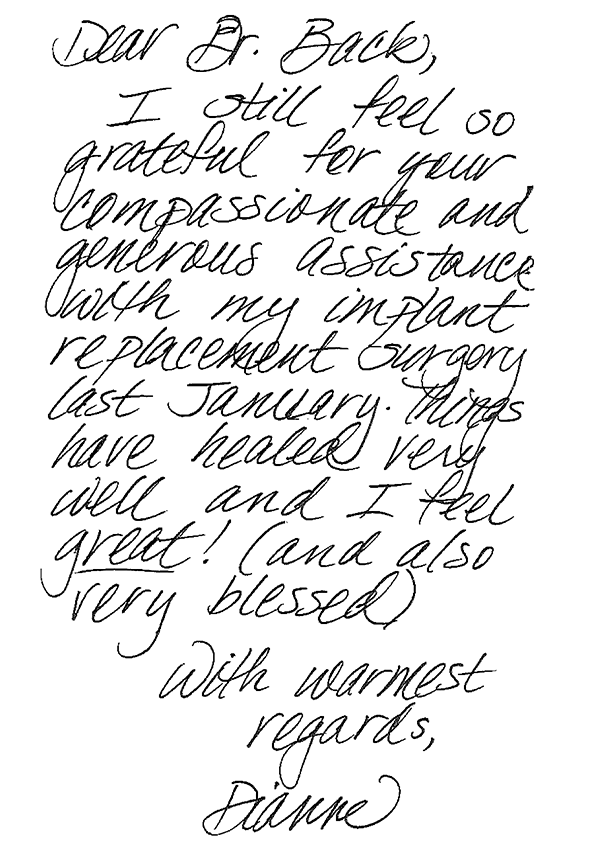 Dear Dr. Back,
I still feel so
grateful for your
compassionate and
generous assistance
with my implant
replacement surgery
last January. Things
have healed very
well and I feel
great! (and also
very blessed)
With warmest
regards,
Dianne